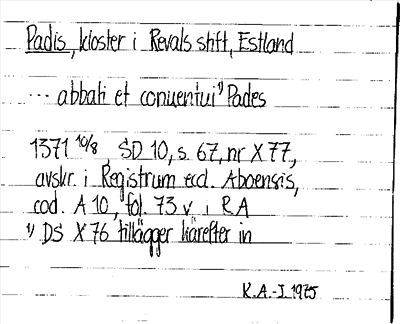 Padis, kloster i Revals stift, Estland
... abbati et conuentui ¹) Pades
1371 10/8, SD 10, s. 67, nr X 77,
avskr. i Registrum eccl. Aboensis,
cod. A 10, fol. 73 v i RA
¹) DS X 76 tillägger härefter in
K.A.-I. 1975